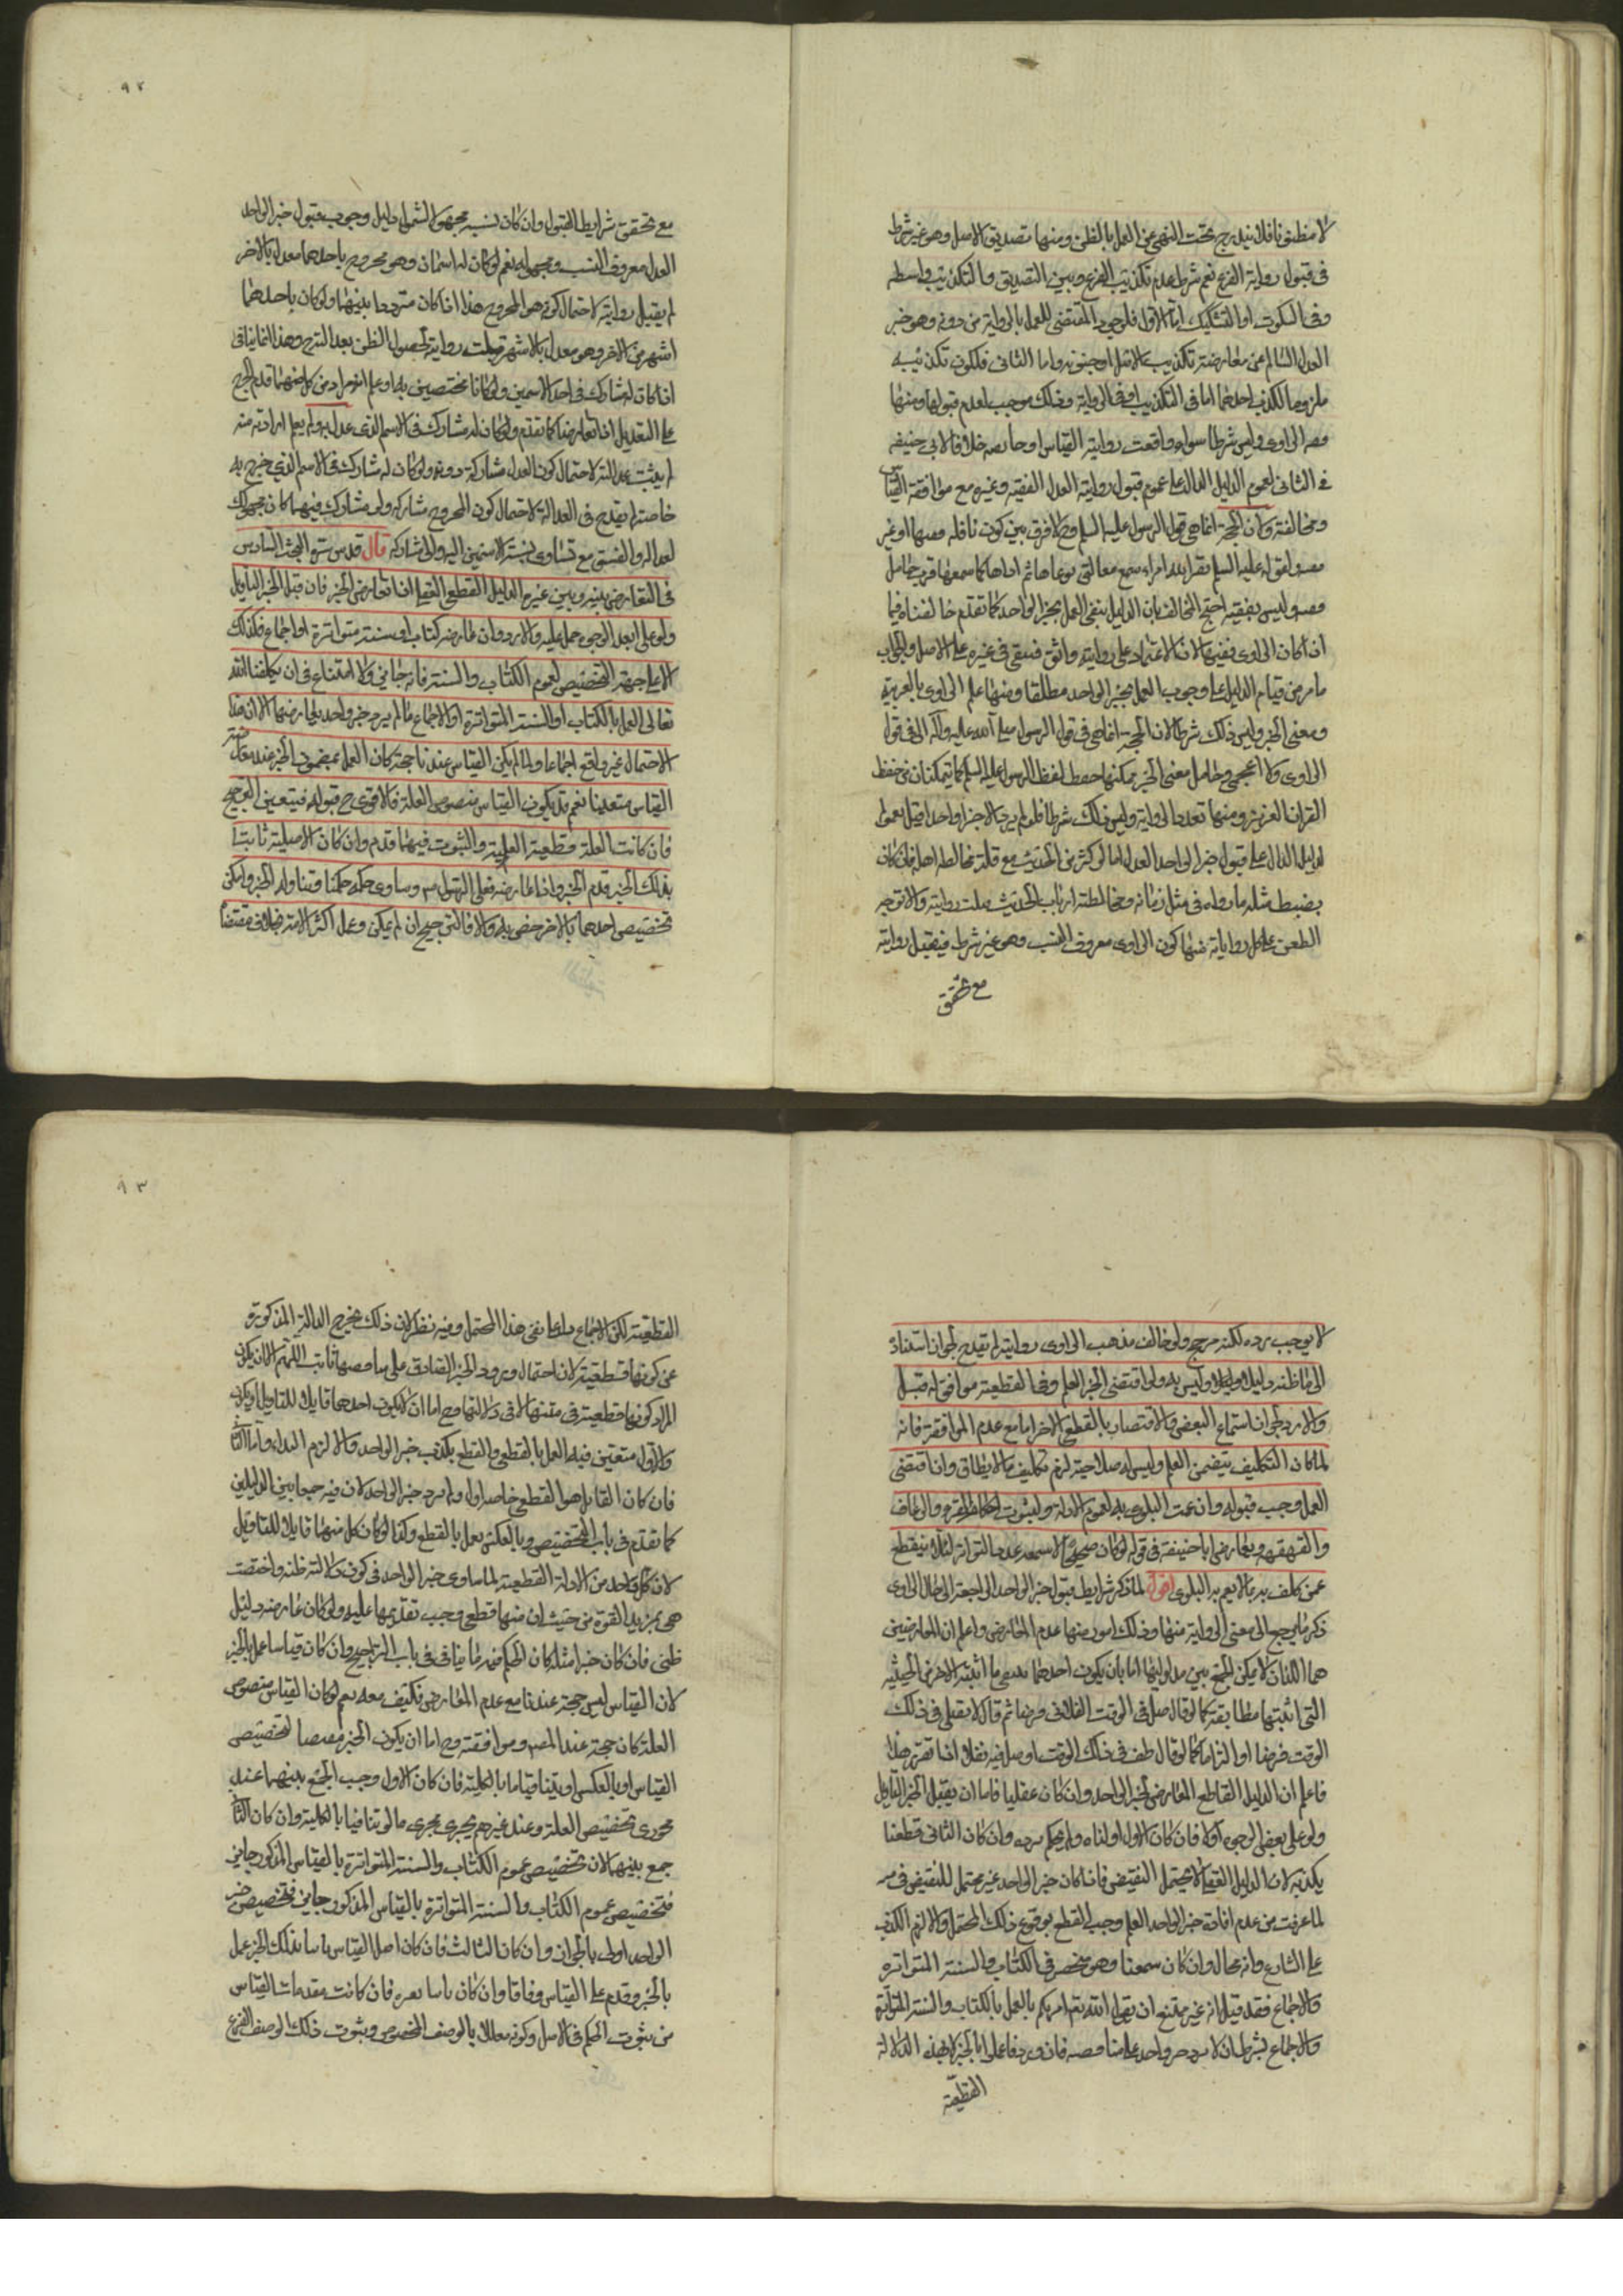 لا مظنونا فلا يندرج تحت النهى عن العمل بالظن ومنها تصديق الاصل وهو غير شرط
فى قبول رواية الفرع نعم شرط عدم تكذيب الفرع وبين التصديق والتكذيب واسطه
وفى السكوت او التشكيك اما الاول فلوجود المقتضى للعمل بالرواية من دونه وهو خبر
العدل السالم عن معارضة تكذيب الاصل وجنونه واما الثانى فلكون تكذيبه
ملزوما لكذب احدهما اما فى التكذيب او فى الرواية وذلك موجب لعدم قبولها ومنها
فقه الراوى وليس شرطا سواء وافقت روايته القياس او خالفته خلافا لابى حنيفه
فى الثانى لعموم الدليل الدال على عموم قبول رواية العدل الفقيه وغيره مع موافقة القياس
ومخالفته ولان الحجة انما هى قول الرسول عليه السلم وح لا فرق بين كون ناقله فقيها او غير
فقيه ولقوله عليه السلم نضر الله امراء سمع مقالتى فوعاها ثم اداها كما سمعها فرب حامل
فقه وليس بفقيه احتج المخالف بان الدليل ينفى العمل بخبر الواحد كما تقدم خالفناه فيما
اذا كان الراوى فقيها لان الاعتماد على روايته واثق فيبقى فى غيره على الاصل والجواب
ما مر من قيام الدليل على وجوب العمل بخبر الواحد مطلقا ومنها علم الراوى بالعربية
ومعنى الخبر وليس ذلك شرطا لان الحجة انما هى فى قول الرسول صلى الله عليه وآله لا فى قول
الراوى ولا اعجمى وحامل معنى الخبر يمكنهما حفظ لفظ الرسول عليه السلم كما يتمكنان من حفظ
القران العزيز ومنها تعدد الرواية وليس ذلك شرطا فلو لم يرو الا خبرا واحدا قبل لعموم
الدليل الدال على قبول خبر الواحد العدل اما لو كثر من الحديث مع قلة مخالطة اهله فان كان
يضبط مثله ما رواه فى مثل زمانه ومخالطته ارباب الحديث قبلت روايته والا توجه
الطعن على كل رواياته منها كون الراوى معروف النسب وهو غير شرط فيقبل روايته
مع تحقق
٩٢
مع تحقق شرايط القبول وان كان نسبه مجهولا لشمول دليل وجوب قبول خبر الواحد
العدل معروف النسب ومجهوله نعم لو كان له اسمان وهو مجروح باحدهما معدل بالاخر
لم يقبل روايته لاحتمال كونه هو المجروح هذا اذا كان مترددا بينهما ولو كان باحدهما
اشهر من الاخر وهو معدل بالاشهر قبلت روايته لحصول الظن بعد الترج وهذا انما ياتى
اذا كان له مشارك فى احد الاسمين ولو كانا مختصين به او علم انه مراد من كل منهما قدم الجرح
على التعديل اذا تعارضا كما تقدم ولو كان له مشارك فى الاسم الذى عدل به ولم يعلم ارادته منه
لم يثبت عدالته لاحتمال كون العدل مشاركه دونه ولو كان له مشارك فى الاسم الذى جرح به
خاصة لم يقدح فى العدالة لاحتمال كون المجروح مشاركه ولو شورك فيهما كان مجهول
العدالة والفسق مع تساوى نسبة الاسمين اليه والى مشاركه قال قدس سره البحث السادس
فى التعارض بينه وبين غيره الدليل القطعى العقلى اذا تعارض الخبر فان قبل الخبر التأويل
ولو على ابعد الوجوه حمل عليه والا رد وان عارضه كتاب او سنة متواترة او اجماع فكذلك
الا على جهة التخصيص لعموم الكتاب والسنة فانه جايز ولا امتناع فى ان يكلفنا الله
تعالى العمل بالكتاب او السنة المتواترة او الاجماع ما لم يرد خبر واحد يعارضها الا ان هذا
الاحتمال غير واقع اجماعا ولما لم يكن القياس عندنا حجة كان العمل بمضمون الخبر عند معارضته
القياس متعينا نعم قد يكون القياس منصوص العلة فالاقوى ح قبوله فيتعين الترجيح
فان كانت العلة قطعية العلية والثبوت فيهما قدم وان كان الاصلية ثابتا
بذلك الخبر قدم الخبر واذا عارضه فعل الرسول ص وساوى حكمه حكمنا وتناوله الخبر وامكن
تخصيص احدهما بالاخر خص به والا فالترجيح ان لم يمكن وعمل اكثر الامة بخلاف مقتضاه
لا يوجب رده لكنه مرجح ولو خالف مذهب الراوى روايته لم يقدح لجواز استناده
الى ما ظنه دليلا وليس به ولو اقتضى الخبر العلم وفى القطعية موافق له قبل
والا رد لجواز استماع البعض والاقتصار بالقطعى الاخر اما مع عدم الموافقة فانه
لما كان التكليف يتضمن العلم وليس له صلاحية لزم تكليف ما لا يطاق وان اقتضى
العمل وجب قبوله وان عمت البلوى به لعموم الادلة ولثبوت احكام القىء والرعاف
والقهقهه ويعارض ابا حنيفة فى قوله لو كان صحيحا لاسمعه عدد التواتر لئلا ينقطع
عمن كلف به بما لا يعم به البلوى اقول لما ذكر شرايط قبول خبر الواحد الراجعة الى حال الراوى
ذكر ما يرجع الى معنى الرواية منها وذلك امور منها عدم المعارض واعلم ان المعارضين
هما اللذان لا يمكن الجمع بين مدلوليهما اما بان يكون احدهما ينفى ما اثبته الاخر من الحيثية
التى اثبتها مطابقة كما لو قال صل فى الوقت الفلانى فرضا ثم قال لا تصل فى ذلك
الوقت فرضا او التزاما كما لو قال طف فى ذلك الوقت او صل فيه نفلا اذا تقرر هذا
فاعلم ان الدليل القاطع المعارض لخبر الواحد وان كان عقليا فاما ان يقبل الخبر التأويل
ولو على بعض الوجوه او لا فان كان الاول اولناه ولم يحكم برده وان كان الثانى قطعنا
بكذبه لان الدليل العقلى لا يحتمل النقيض فاذا كان خبر الواحد غير محتمل للنقيض
لما عرفت من عدم افادة خبر الواحد العلم وجب القطع بوقوع ذلك المحتمل والا لزم الكذب
على الشارع وانه محال وان كان سمعيا وهو منحصر فى الكتاب والسنة المتواترة
والاجماع فقد قيل انه غير ممتنع ان يقول الله تع امركم بالعمل بالكتاب والسنة المتواترة
والاجماع بشرط ان لا يرد خبر واحد على مناقضته فان ورد فاعملوا بالخبر لا بهذه الدلالة
القطعية
٩٣
القطعية لكن الاجماع دل على نفى هذا المحتمل وفيه نظر لان ذلك يخرج الدلالة المذكورة
عن كونها قطعية لان احتمال ورود الخبر الصادق على مناقضتها ثابت اللهم الا ان يكون
المراد كونها قطعية فى متنها لا فى دلالتها وح اما ان لا يكون احدهما قابلا للتاويل او يكون
والاول متعين فيه العمل بالقطعى والقطع بكذب خبر الواحد والا لزم البداء واما الثانى
فان كان القابل هو القطعى خاصة اول ولم يرد خبر الواحد لان فيه جمعا بين الدليلين
كما تقدم فى باب التخصيص وبالعكس يعمل بالقطعى وكذا لو كان كل منهما قابلا للتاويل
لان كل واحد من الادلة القطعية لما ساوى خبر الواحد فى كون دلالته ظنية واختصت
هى بمزيد القوة من حيث ان متنها قطعى وجب تقديمها عليه ولو كان عارضه دليل
ظنى فان كان خبرا مثله كان الحكم فيه ما ياتى فى باب التراجيح وان كان قياسا عمل بالخبر
لان القياس ليس حجة عندنا مع عدم المعارض فكيف معه نعم لو كان القياس منصوص
العلة كان حجة عند المص ومن وافقه وح اما ان يكون الخبر مقتضيا لتخصيص
القياس او بالعكس او يتنافيا بالكلية فان كان الاول وجب الجمع بينهما عند
مجوزى تخصيص العلة وعند غيرهم يجرى مجرى ما لو تنافيا بالكلية وان كان الثانى
جمع بينهما لان تخصيص عموم الكتاب والسنة المتواترة بالقياس المذكور جايز
فتخصيص عموم الكتاب والسنة المتواترة بالقياس المذكور جايز فتخصيص خبر
الواحد اولى بالجواز وان كان الثالث فان كان اصل القياس ثابتا بذلك الخبر عمل
بالخبر وقدم على القياس وفاقا وان كان ثابتا بغيره فان كانت مقدمات القياس
من ثبوت الحكم فى الاصل وكونه معللا بالوصف المخصوص وثبوت ذلك الوصف فى الفرع